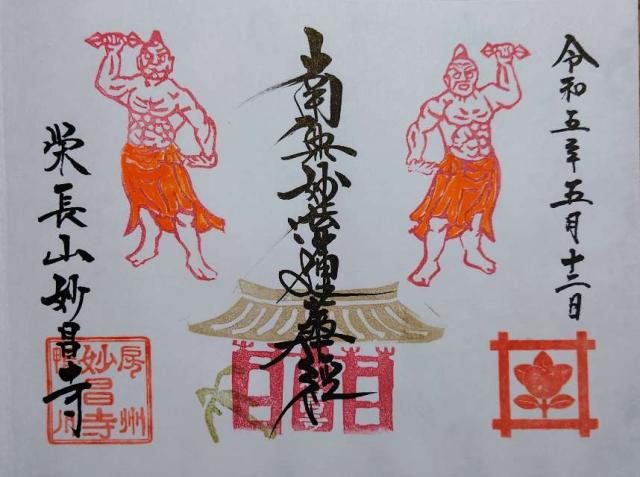 令和五年五月十二日
南無妙法蓮華経
栄長山妙昌寺
房州
妙昌寺
鴨川